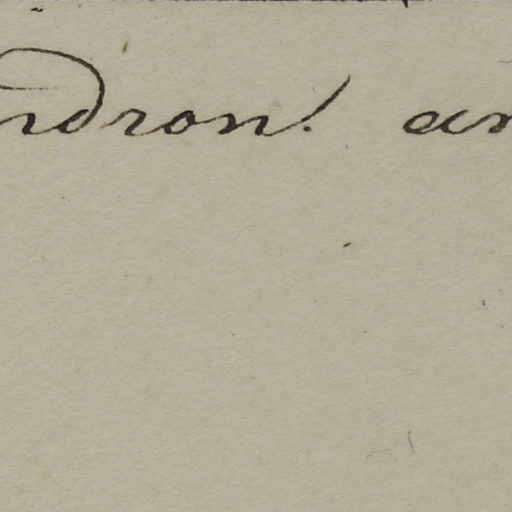 ndron! an